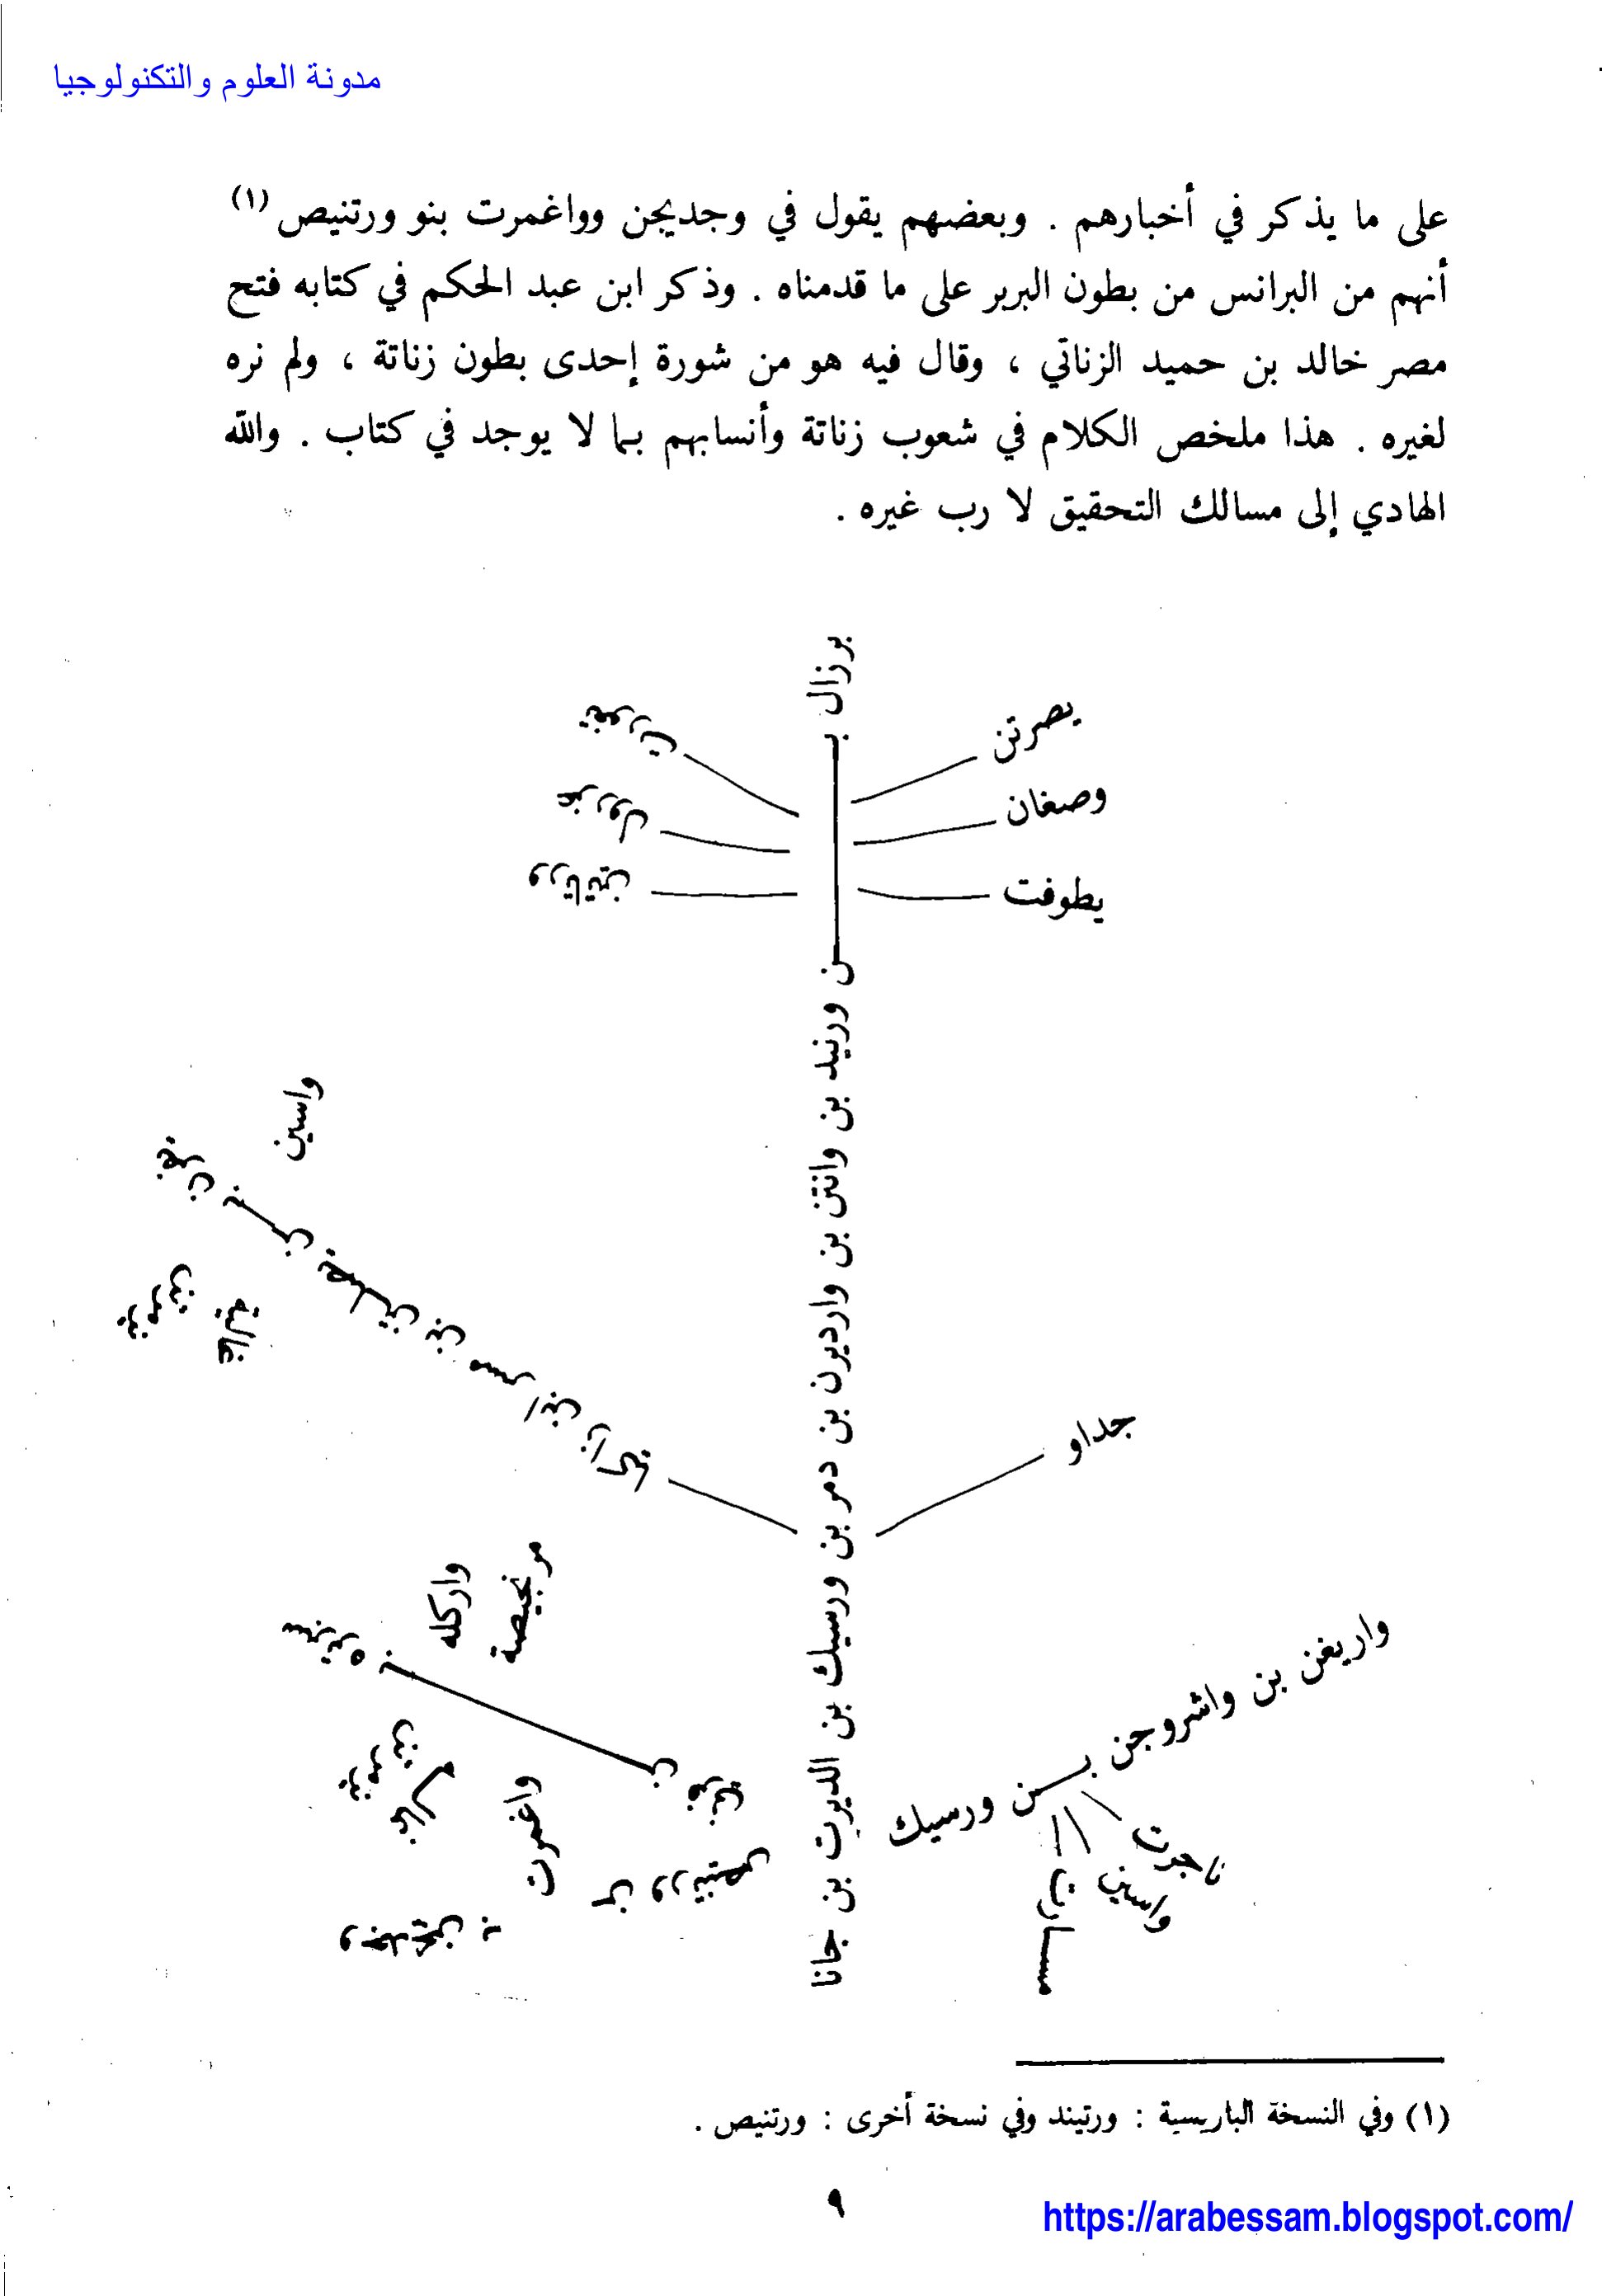 مدونة العلوم والتكنولوجيا
على ما يذكر في أخبارهم . وبعضهم يقول في وجديجن وواغمرت بنو ورتنيص (١)
أنهم من البرانس من بطون البربر على ما قدمناه . وذكر ابن عبد الحكم في كتابه فتح
مصر خالد بن حميد الزناتي ، وقال فيه هو من شورة إحدى بطون زناتة ، ولم نره
لغيره . هذا ملخص الكلام في شعوب زناتة وأنسابهم بما لا يوجد في كتاب . والله
الهادي إلى مسالك التحقيق لا رب غيره .
برزال بن ورنيد بن وانتن بن وارديرن بن دمر بن ورسيك بن الديرت بن جانا
يصرتن
وصغان
يطوفت
تغورت
عزرول
ورتاتين
جداو
واسين
يفرن بن يصلتين بن مسرا بن زاكيا
يزمرتن
مرنجيصة
واركله
يزمرتن
واغمرت
وجديجن بن ورتنيص
واريغن بن واشروجن بن ورسيك
ناجرت
واسين
(١) وفي النسخة الباريسية : ورتيند وفي نسخة أخرى : ورتنيص .
٩
https://arabessam.blogspot.com/